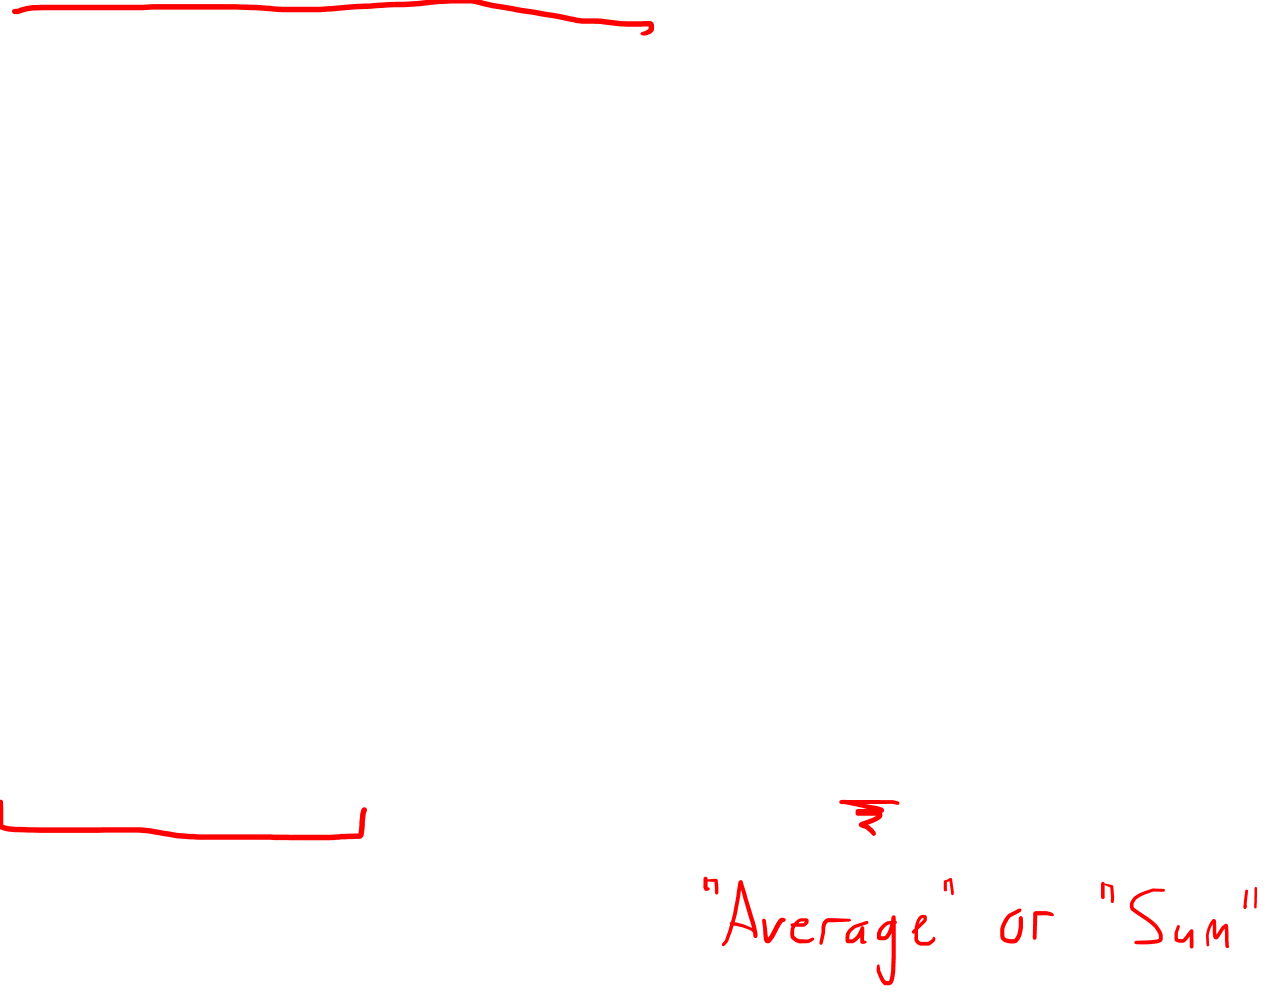 "Average" or "Sum"